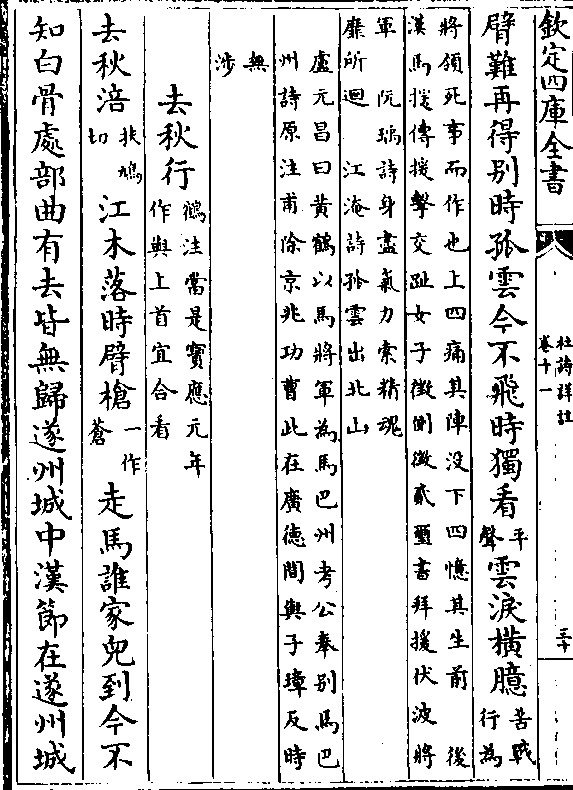 欽定四庫全書
杜詩詳註
卷十一
三十
臂難再得别時孤雲今不飛時獨看平聲雲淚橫臆苦戰行為
將領死事而作也上四痛其陣没下四憶其生前 後
漢馬援傳援擊交趾女子徵側徵貳璽書拜援伏波將
軍 阮瑀詩身盡氣力索精魂
靡所迴 江淹詩孤雲出北山
盧元昌曰黃鶴以馬將軍為馬巴州考公奉别馬巴
州詩原注甫除京兆功曹此在廣德間與子璋反時
無
涉
去秋行鶴注當是寶應元年作與上首宜合看
去秋涪扶鳩切江木落時臂槍一作蒼走馬誰家兒到今不
知白骨處部曲有去皆無歸遂州城中漢節在遂州城